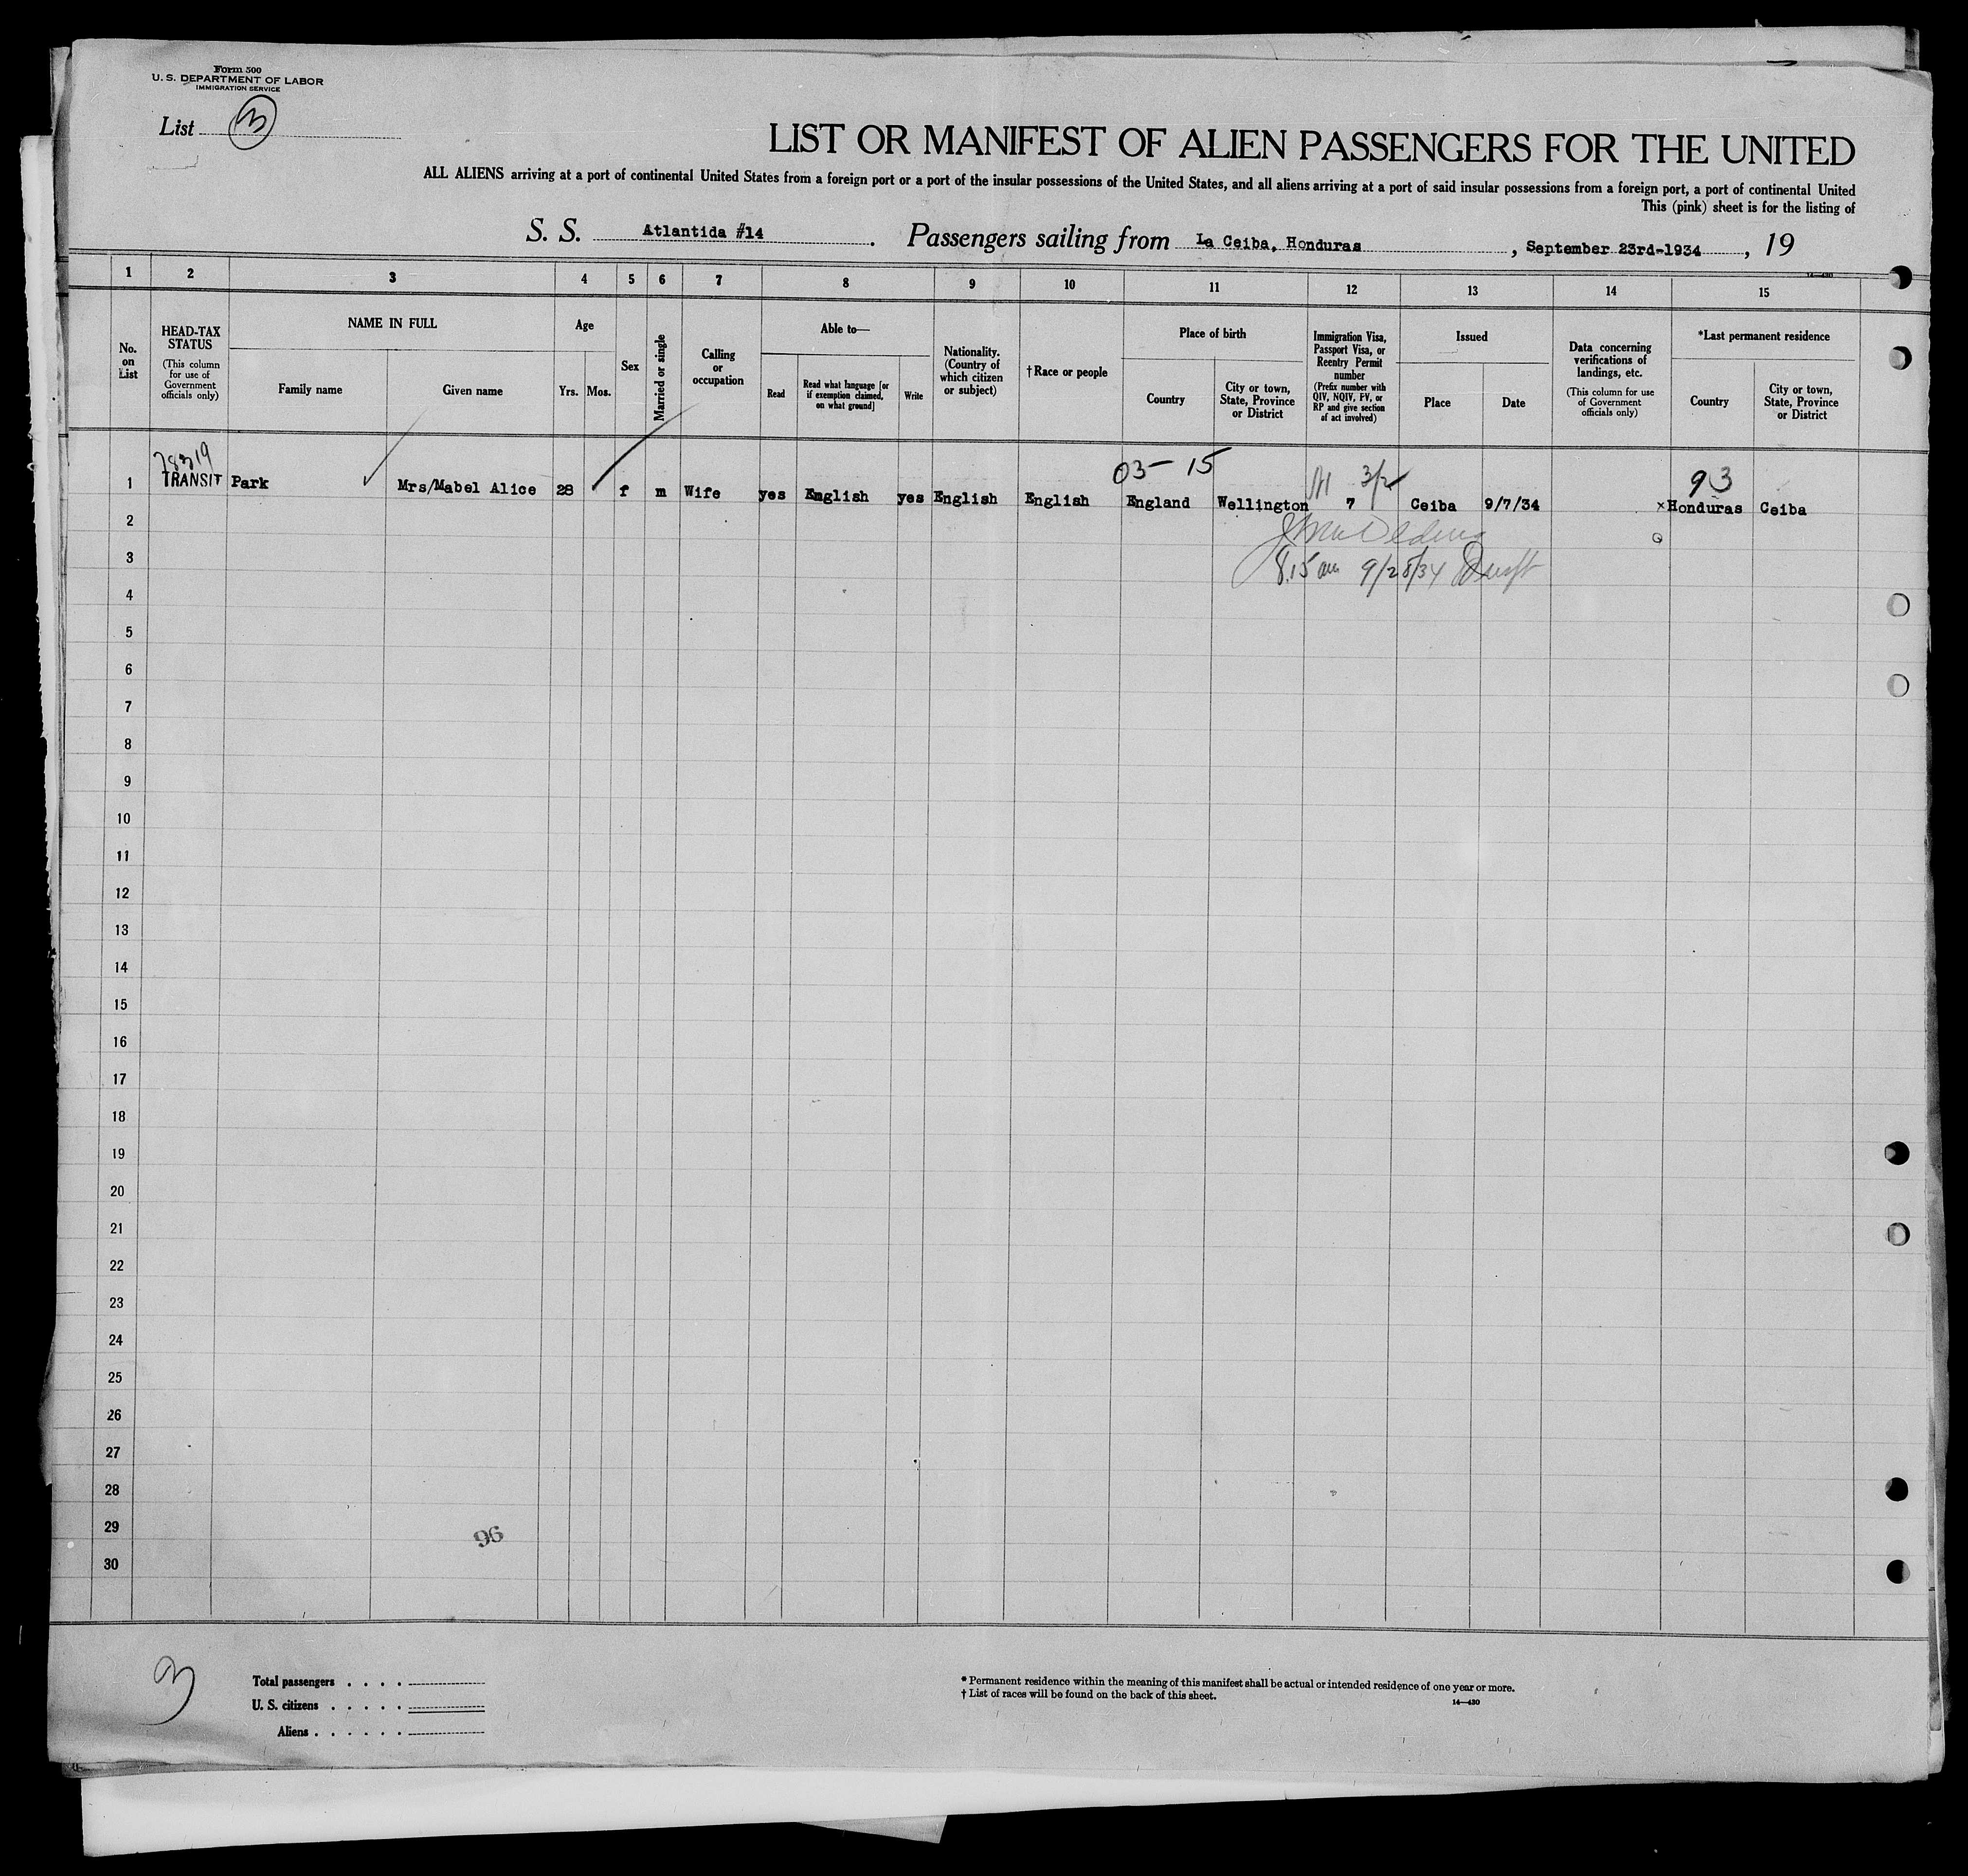 Form 500
U. S. DEPARTMENT OF LABOR
IMMIGRATION SERVICE
List 3
LIST OR MANIFEST OF ALIEN PASSENGERS FOR THE UNITED
ALL ALIENS arriving at a port of continental United States from a foreign port or a port of the insular possessions of the United States, and all aliens arriving at a port of said insular possessions from a foreign port, a port of continental United
This (pink) sheet is for the listing of
S. S. Atlantida #14. Passengers sailing from La Ceiba, Honduras, September 23rd-1934, 19
14-430
1 2 3 4 5 6 7 8 9 10 11 12 13 14 15
No. on List
HEAD-TAX STATUS
(This column for use of Government officials only)
NAME IN FULL
Family name
Given name
Age
Yrs. Mos.
Sex
Married or single
Calling or occupation
Able to—
Read
Read what language [or if exemption claimed, on what ground]
Write
Nationality. (Country of which citizen or subject)
†Race or people
Place of birth
Country
City or town, State, Province or District
Immigration Visa, Passport Visa, or Reentry Permit number
(Prefix number with QIV, NQIV, PV, or RP and give section of act involved)
Issued
Place
Date
Data concerning verifications of landings, etc.
(This column for use of Government officials only)
*Last permanent residence
Country
City or town, State, Province or District
03- 15 3/2 93
1 TRANSIT Park Mrs/Mabel Alice 28 f m Wife yes English yes English English England Wellington 7 Ceiba 9/7/34 xHonduras Ceiba
2
3
8.15 am 9/28/34
4
5
6
7
8
9
10
11
12
13
14
15
16
17
18
19
20
21
22
23
24
25
26
27
28
29
96
30
3
Total passengers . . . .
U. S. citizens . . . . .
Aliens . . . . . .
* Permanent residence within the meaning of this manifest shall be actual or intended residence of one year or more.
† List of races will be found on the back of this sheet.
14—430